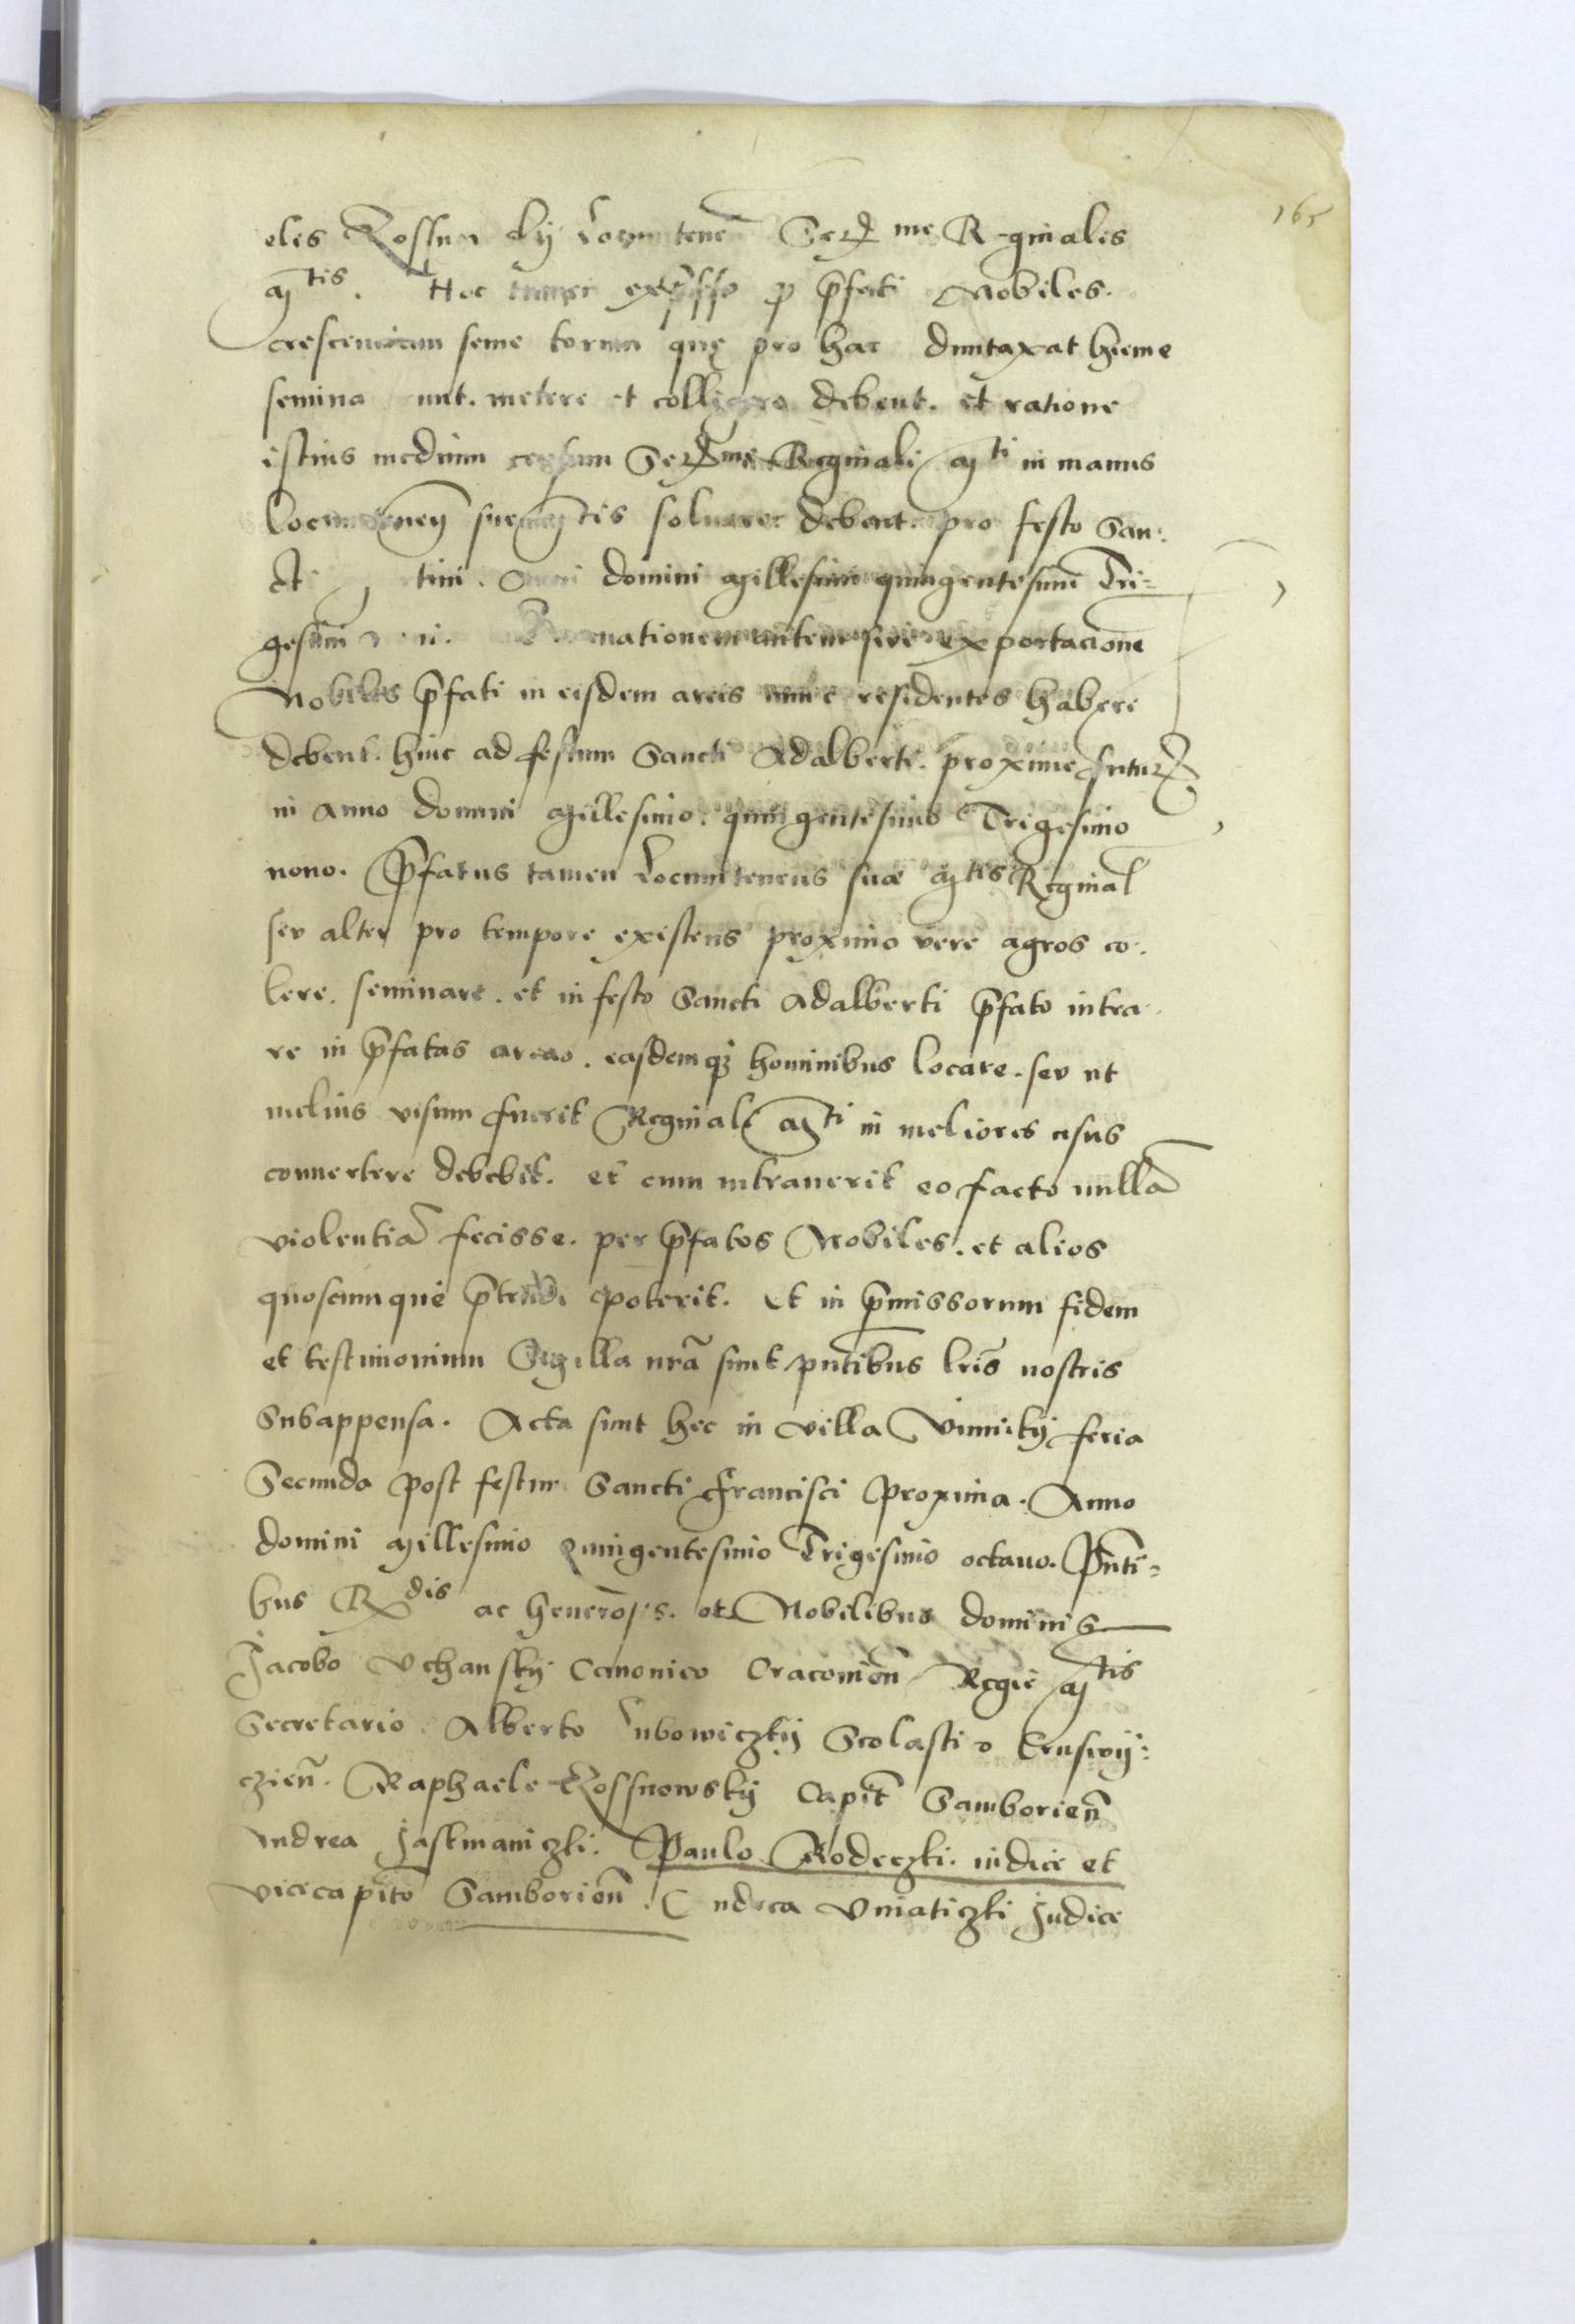 165
eles Kossno skÿ Locumtenen Sereme Reginalis
Mtis. Hoc tamen expresso qp pfati Nobiles.
crescenciam seme torum quę pro hac duntaxat hieme
semina unt. metere et colligere debent. et ratione
istius medium censum Sereme Reginali Mti in manus
locumtenen sue Mtis soluere debent. pro festo San:
cti tini. Anni domini Millesimi quingentesimi Tri=
gesimi noni. mationem autem siue exportacione
Nobiles pfati in eisdem areis nunc residentes habere
debent. hinc ad festum Sancti Adalberti. proxime futur
in anno domini Millesimo. quingentesimo Trigesimo
nono. Pfatus tamen Locumtenens suæ Mtis Reginal
seu alter pro tempore existens proximo vere agros co.
lere. seminare. et in festo Sancti Adalberti pfato intra.
re in pfatas areas. easdemq hominibus locare. seu ut
melius visum fuerit Reginali Mti in meliores usus
conuertere debebit. et cum intrauerit eo facto nullã
violentiã fecisse. per pfatos Nobiles. et alios
quoscunque ptendi poterit. Et in pmissorum fidem
et testimonium Sigilla nrã sunt pntibus lris nostris
Subappensa. Acta sunt hec in villa Vinnikÿ feria
Secunda post festum Sancti Francisci proxima. Anno
domini Millesimo Quingentesimo Trigesimo octauo. Pnti=
bus Rdis ac Generosis. et Nobilibus dominis
Jacobo Vchanskÿ Canonico Cracouien Regie Mtis
Secretario. Alberto Lubowiczkÿ Scolastico Crusvÿ:
czien. Raphaele Kossnowskÿ Capit Samborien
Andrea Jastmaniczki. Paulo Rodeczki. iudice et
vicecapito Samborien. Andrea Vniaticzki Judice